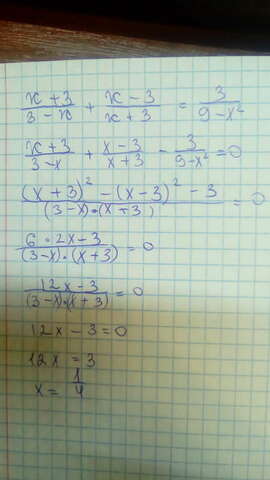 (x + 3)/(3 - x) + (x - 3)/(x + 3) = 3/(9 - x²)
(x + 3)/(3 - x) + (x - 3)/(x + 3) - 3/(9 - x²) = 0
((x + 3)² - (x - 3)² - 3)/((3 - x)·(x + 3)) = 0
(6 · 2x - 3)/((3 - x)·(x + 3)) = 0
(12x - 3)/((3 - x)·(x + 3)) = 0
12x - 3 = 0
12x = 3
x = 1/4